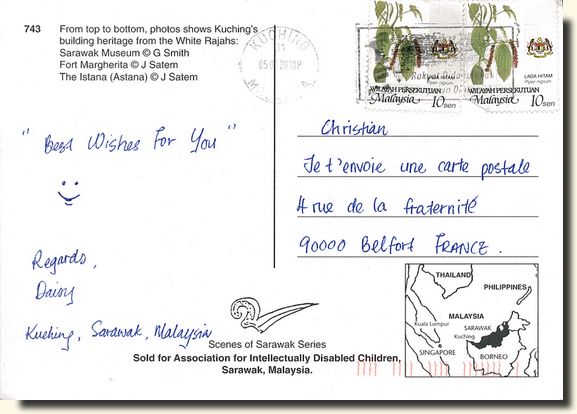 743 From top to bottom, photos shows Kuching's
building heritage from the White Rajahs:
Sarawak Museum © G Smith
Fort Margherita © J Satem
The Istana (Astana) © J Satem
KUCHING
WILAYAH PERSEKUTUAN
Malaysia 10 sen
LADA HITAM
Piper nigrum
WILAYAH PERSEKUTUAN
Malaysia 10 sen
" Best Wishes For You "
Regards,
Daisy
Kuching, Sarawak, Malaysia
Christian
Je t'envoie une carte postale
4 rue de la fraternité
90000 Belfort FRANCE.
Scenes of Sarawak Series
Sold for Association for Intellectually Disabled Children,
Sarawak, Malaysia.
THAILAND
PHILIPPINES
MALAYSIA
Kuala Lumpur
SARAWAK
Kuching
SINGAPORE
BORNEO